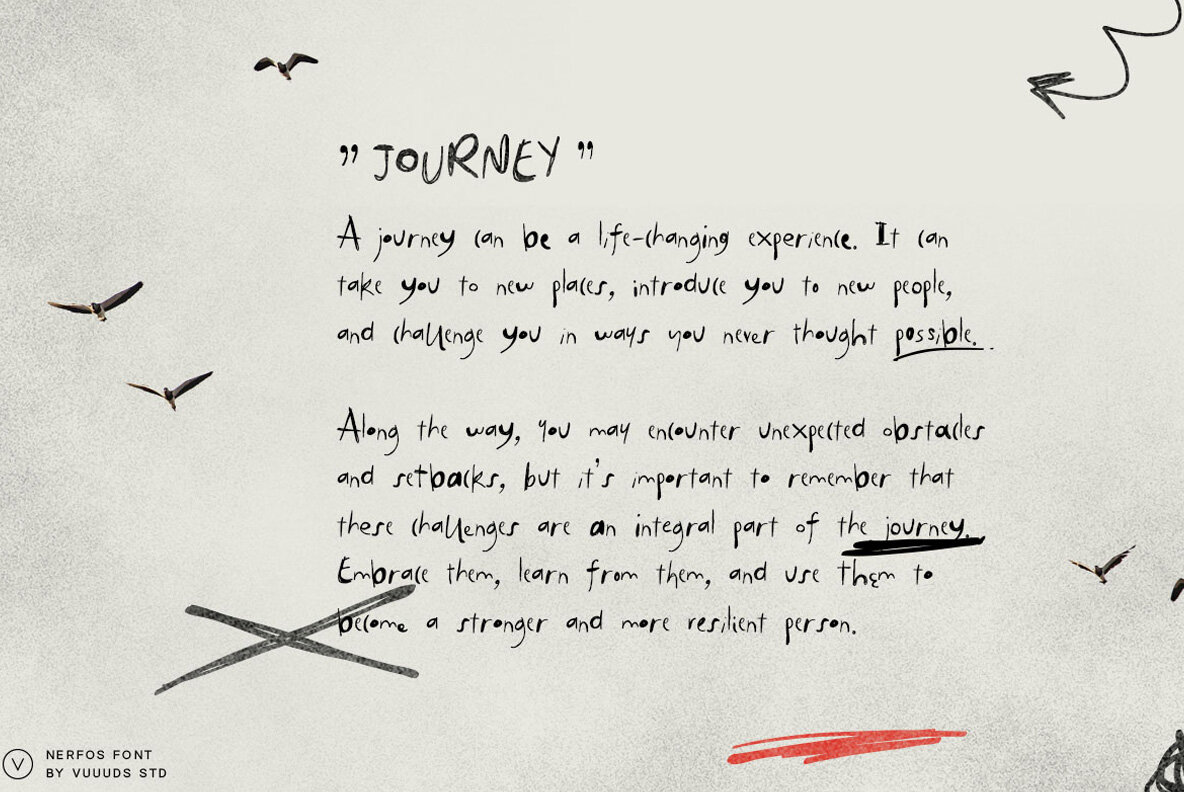 ” JOURNEY ”
A journey can be a life-changing experience. It can
take you to new places, introduce you to new people,
and challenge you in ways you never thought possible.
Along the way, you may encounter unexpected obstacles
and setbacks, but it's important to remember that
these challenges are an integral part of the journey.
Embrace them, learn from them, and use them to
become a stronger and more resilient person.
V
NERFOS FONT
BY VUUUDS STD